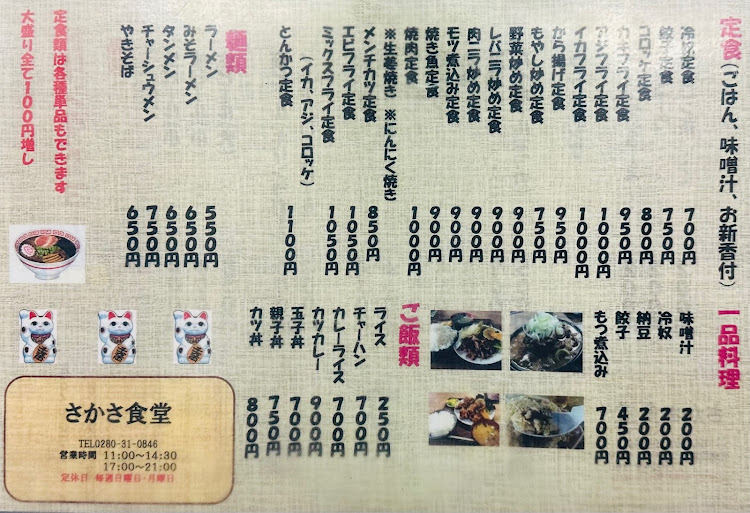 定食(ごはん、味噌汁、お新香付)
冷奴定食 700円
餃子定食 750円
コロッケ定食 800円
カキフライ定食 950円
アジフライ定食 1000円
イカフライ定食 1000円
から揚げ定食 950円
もやし炒め定食 750円
野菜炒め定食 900円
レバニラ炒め定食 900円
肉ニラ炒め定食 900円
モツ煮込み定食 900円
焼き魚定食 900円
焼肉定食 1000円
※生姜焼き ※にんにく焼き
メンチカツ定食 850円
エビフライ定食 1050円
ミックスフライ定食 1050円
(イカ、アジ、コロッケ)
とんかつ定食 1100円
麺類
ラーメン 550円
みそラーメン 650円
タンメン 650円
チャーシュウメン 750円
やきそば 650円
定食類は各種単品もできます
大盛り全て100円増し
一品料理
味噌汁 200円
冷奴 200円
納豆 200円
餃子 450円
もつ煮込み 700円
ご飯類
ライス 250円
チャーハン 700円
カレーライス 700円
カツカレー 900円
玉子丼 700円
親子丼 750円
カツ丼 800円
さかさ食堂
TEL0280-31-0846
営業時間 11:00～14:30
17:00～21:00
定休日 毎週日曜日・月曜日